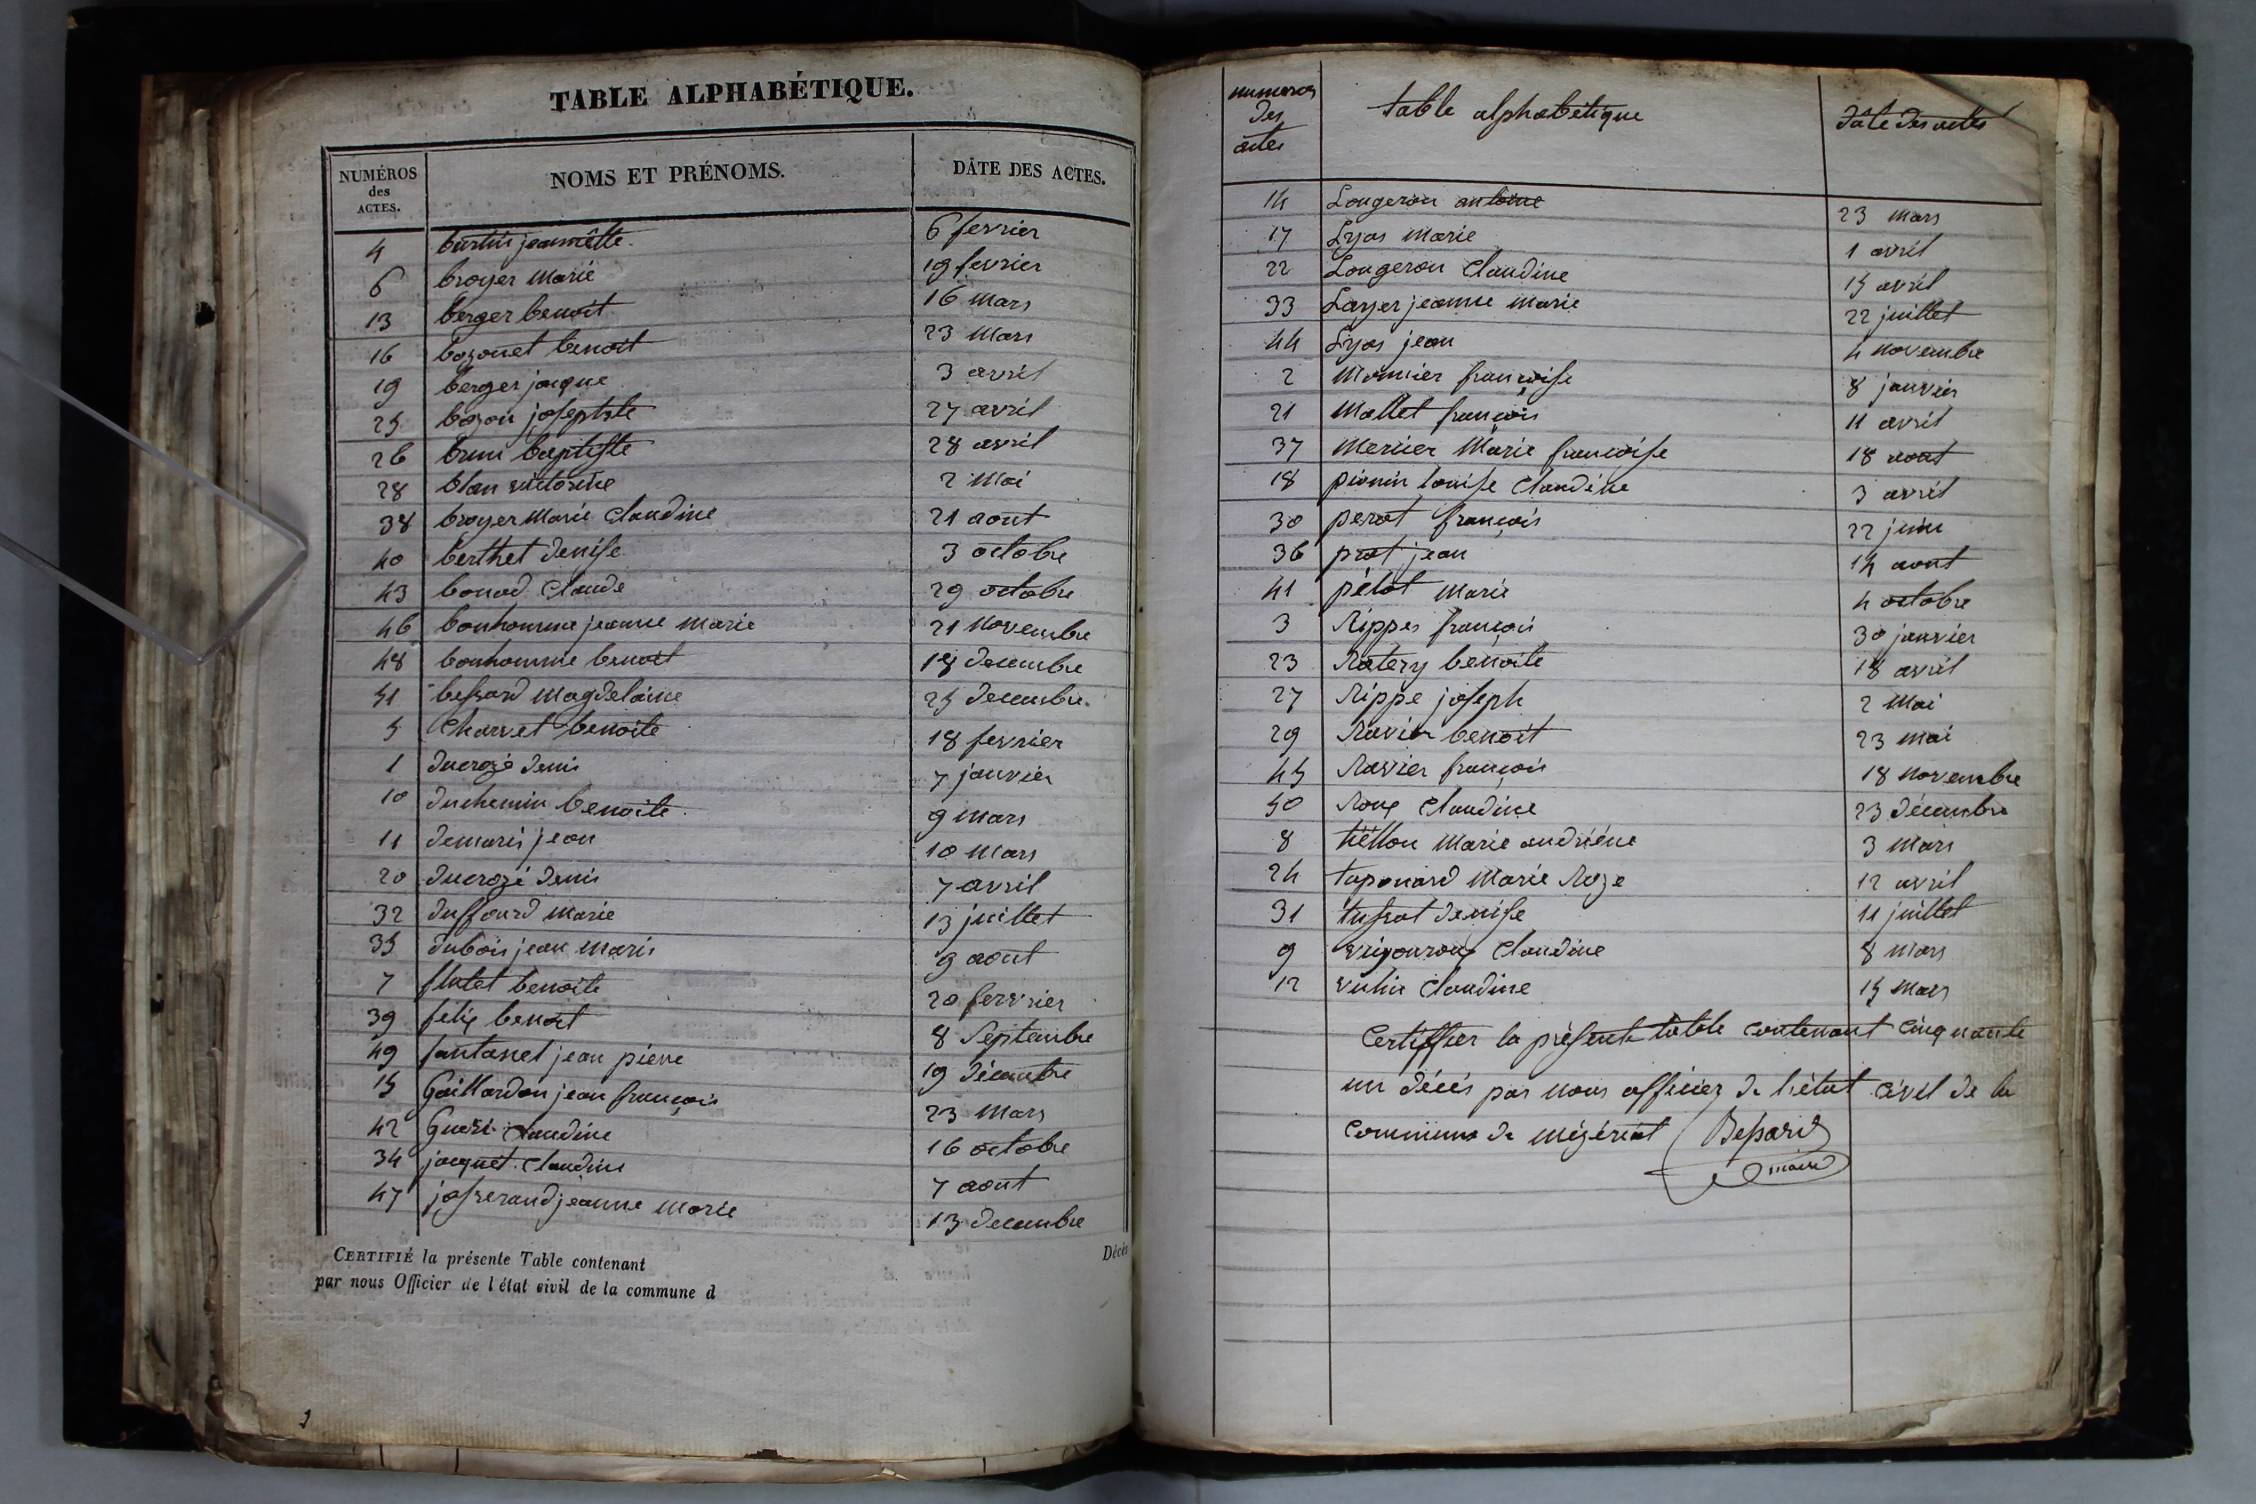 TABLE ALPHABÉTIQUE.
NUMÉROS des ACTES. NOMS ET PRÉNOMS. DÂTE DES ACTES.
4 burtin jeannètte 6 fevrier
6 broyer marie 19 fevrier
13 berger benoit 16 mars
16 bozonet benoit 23 mars
19 berger jacque 3 avril
25 bozon josephte 27 avril
26 brun baptiste 28 avril
28 blan victorine 2 mai
38 broyer marie claudine 21 aout
40 berthet denise 3 octobre
43 bonad claude 29 octobre
46 bonhomme jeanne marie 21 novembre
48 bonhomme benoit decembre
51 bessard magdelaine 25 decembre.
5 Charvet benoite 18 fevrier
1 ducrozé denis 7 janvier
10 duchemin benoite 9 mars
11 demaris jean 10 mars
20 ducrozé denis 7 avril
32 duffourd marie 13 juillet
35 dubois jean maris 9 aout
7 flutet benoite 20 fervrier
39 felix benoit 8 Septembre
49 fontanel jean pierre 19 décembre
15 Gaillardon jean françois 23 mars
42 claudine 16 octobre
34 jacquet claudine 7 aout
47 josserand jeanne marie 13 decembre
CERTIFIÉ la présente Table contenant Décès
par nous Officier de l'état civil de la commune d
numeros des actes table alphabétique dâte des actes
14 Longeron antoine 23 mars
17 Lyas marie 1 avril
22 Longeron claudine 15 avril
33 Layer jeanne marie 22 juillet
44 Lyas jean 4 novembre
2 Monnier françoise 8 janvier
21 Mallet françois 11 avril
37 Mercier Marie françoise 18 aout
18 pionin louise claudine 3 avril
30 perat françois 22 juin
36 prat jean 14 aout
41 pélot marie 4 octobre
3 Rippes françois 30 janvier
23 Ratery benoite 18 avril
27 Rippe joseph 2 mai
29 Ravier benoit 23 mai
45 Ravier françois 18 novembre
50 Roux claudine 23 décembre
8 tiéllon marie andriéne 3 mars
24 taponard marie Roze 12 avril
31 tussat denise 11 juillet
9 vigouroux claudine 8 mars
12 vulin claudine 15 mars
Certiffier la présente table contenant cinquante
un décés par nous officier de l'état civil de la
commune de mézériat Bessard
maire